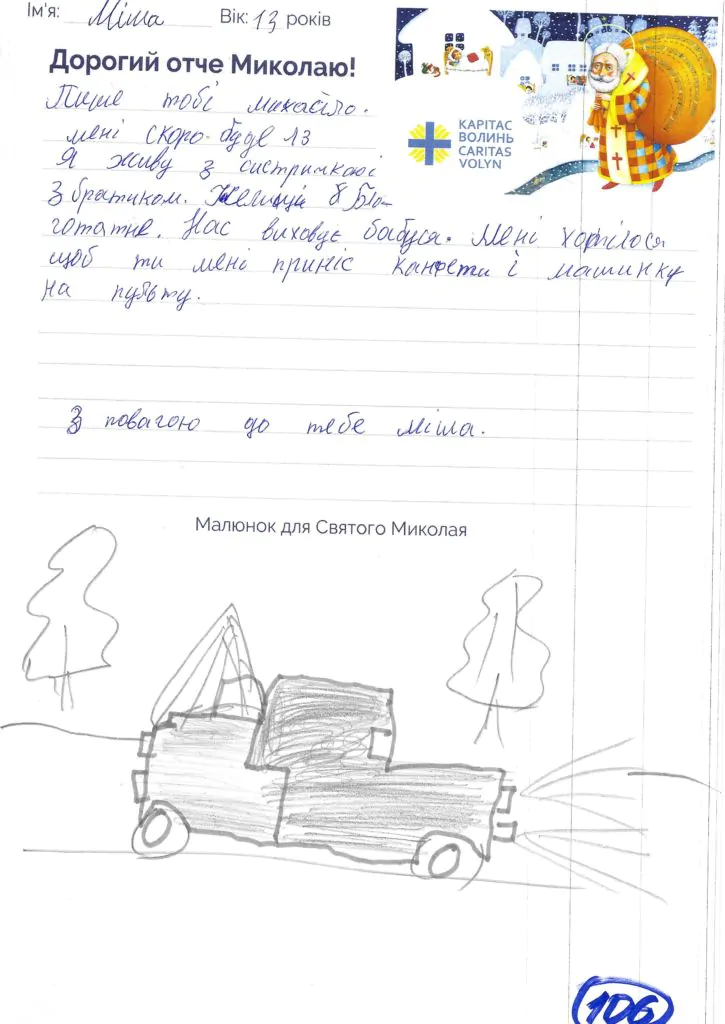 Ім'я: Міша Вік: 13 років
Дорогий отче Миколаю!
КАРІТАС
ВОЛИНЬ
CARITAS
VOLYN
Пише тобі михайло.
мені скоро буде 13
Я живу з систричкою і
З братиком. в
Нас виховує бабуся. Мені хотілося
щоб ти мені приніс канфети і машинку
на пульту.
З повагою до тебе міша.
Малюнок для Святого Миколая
106